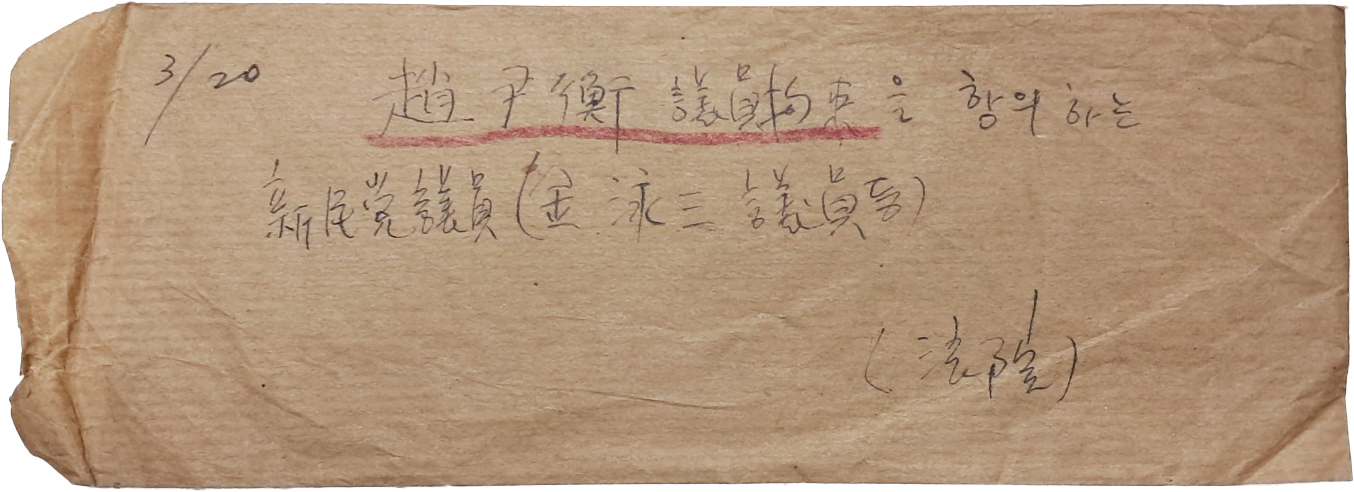 3/20 趙尹衡 議員拘束을 항의 하는
新民党議員(金泳三 議員등)
(法院)